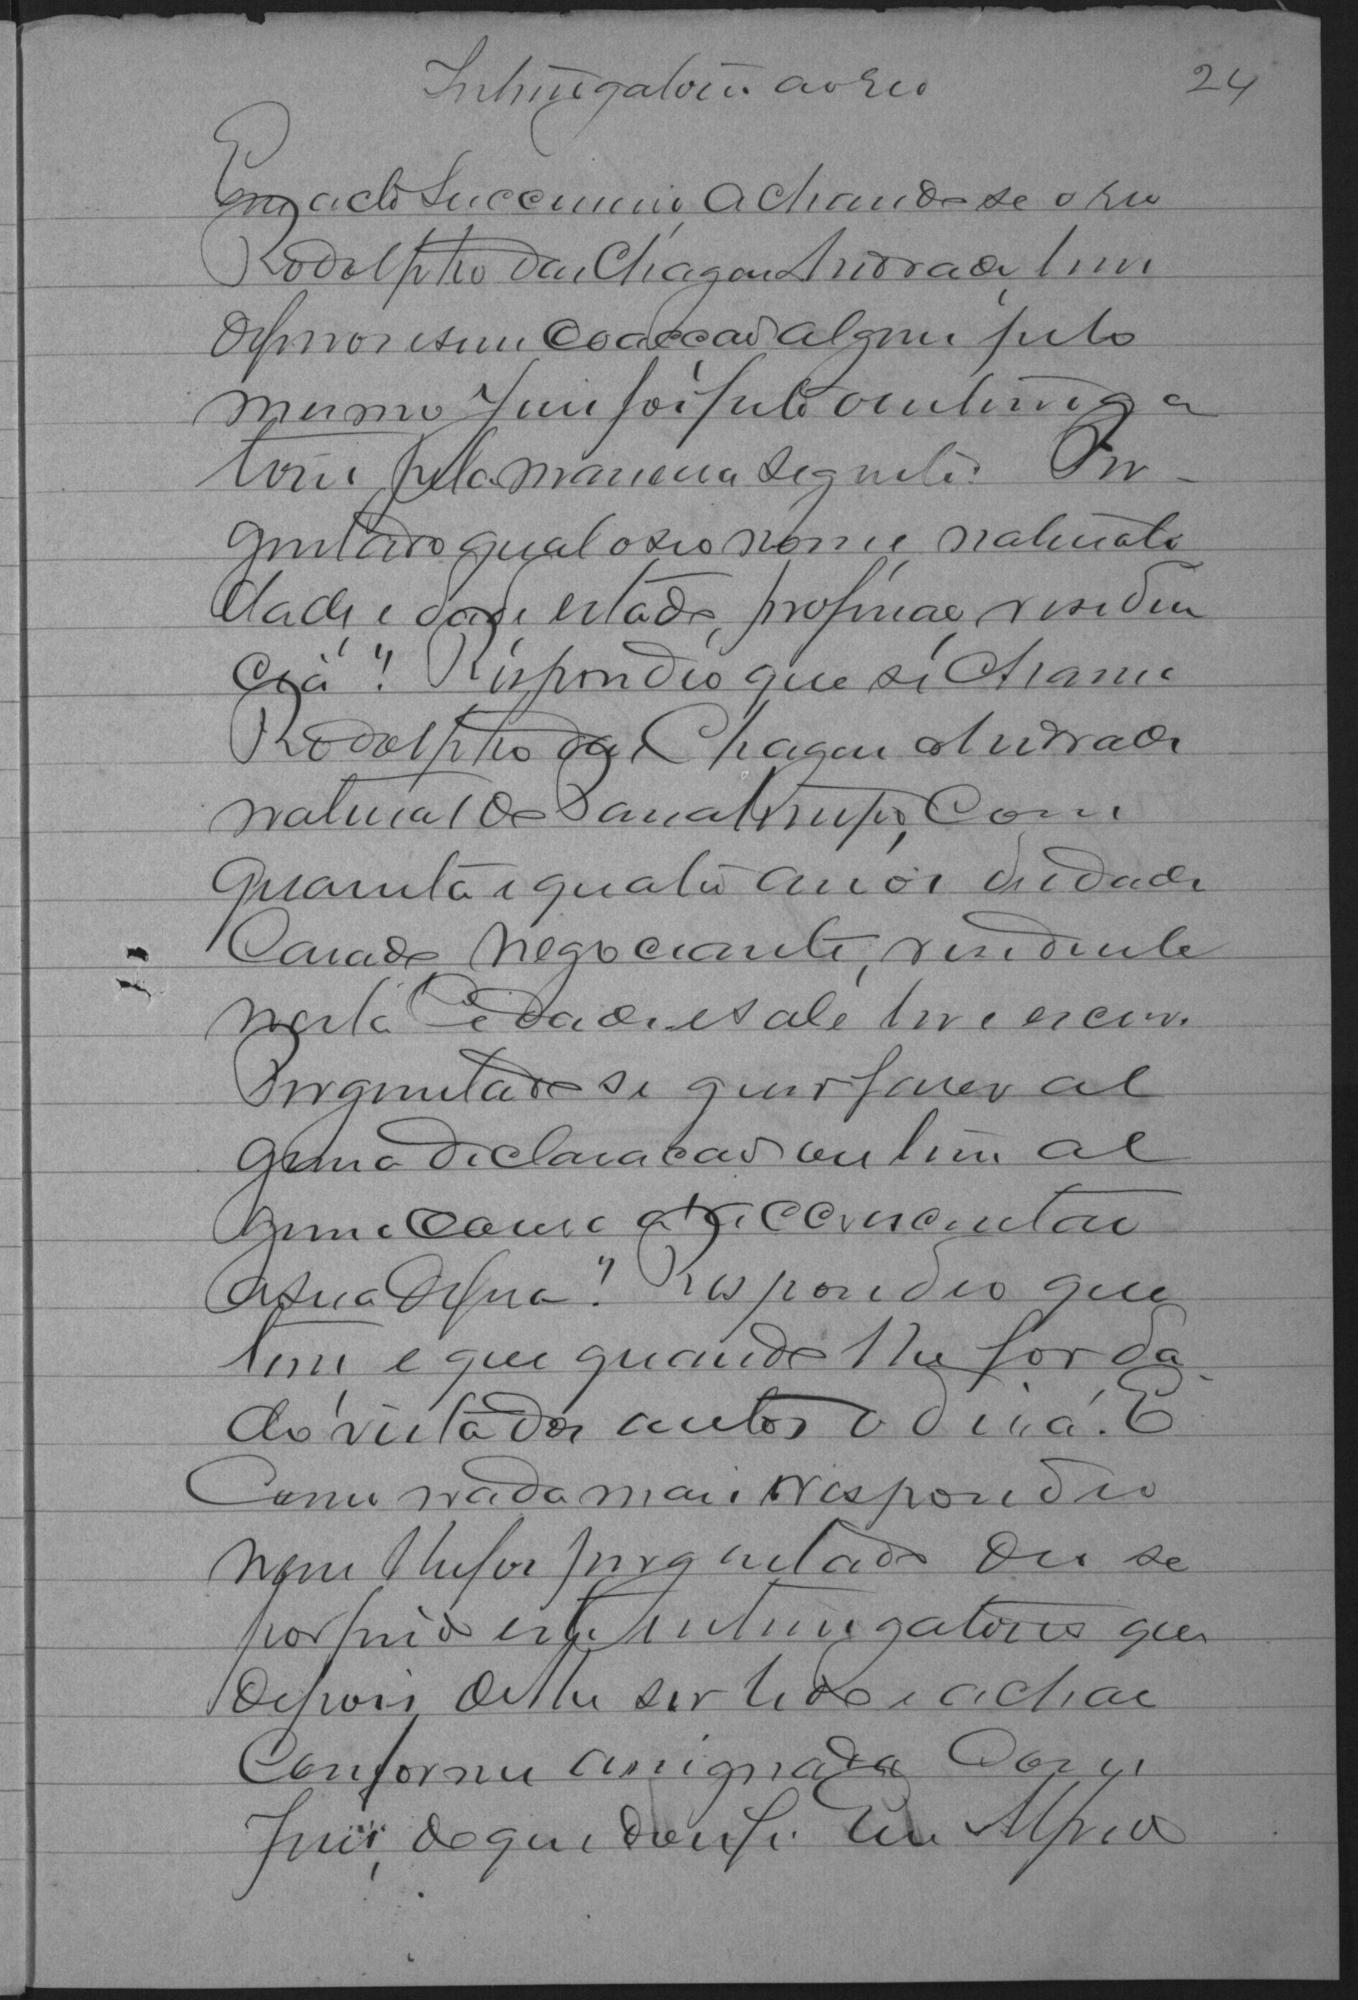 Interrogatorio ao Reo
24
Em acto succecivo achando se o reo
Rodolpho das Chagas Andrade, livre
de ferros e sem coacção alguma pelo
mesmo Juiz foi feito o interroga
torio pela maneira seguinte: Per-
guntado qual o seo nome naturali
dade, edade estado, profissão, residen
cia"? Respondeo que se chama
Rodolpho das Chagas Andrade
natural de com
quarenta e quatro annos de edade
Casado negociante, residente
nesta Cidade e sabe ler e escrever.
Perguntado se quer fazer al
guma declaração ou tem al
guma cousa a accrescentar
a sua defesa"? Respondeo que
tem e que quando lhe for da
do vista dos autos o dirá. E
Como nada mais respondeo
nem lhe foi perguntado deu se
por findo este interrogatorio que
depois de lhe ser lido e achar
conforme assignada com o
Juiz, do que dou fé. Eu Alfredo